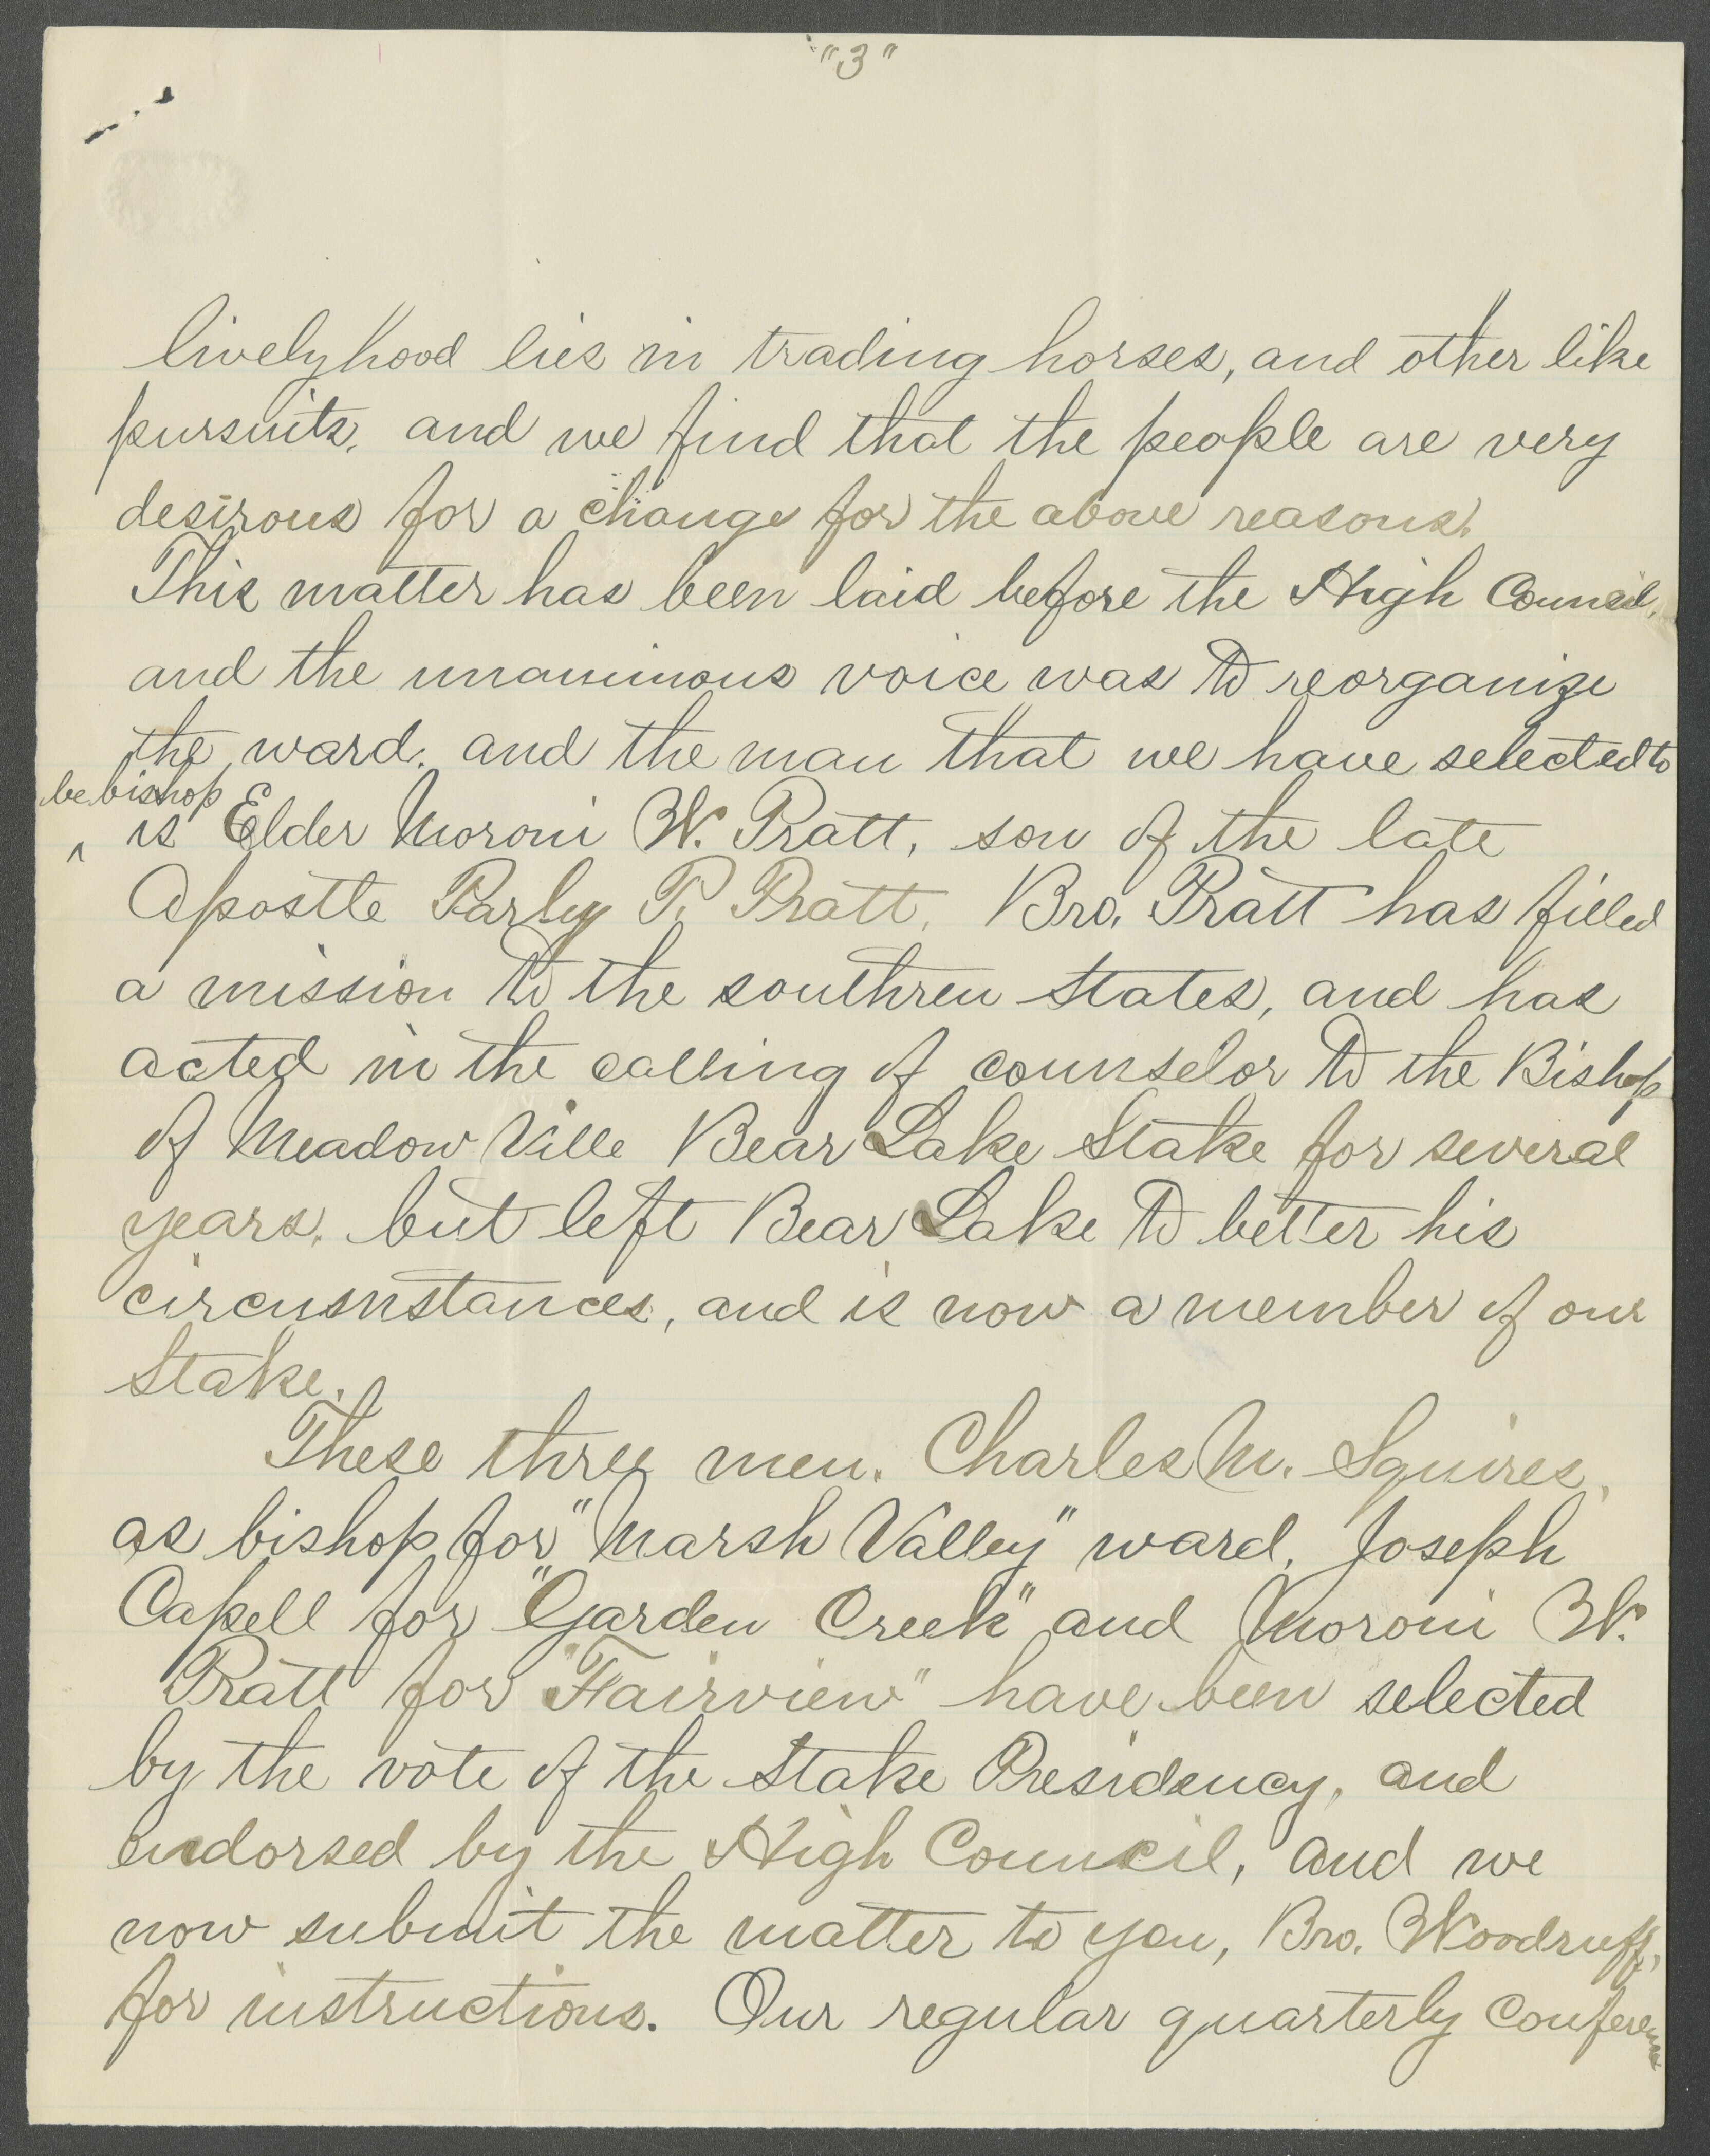 "3"
livelyhood lies in trading horses, and other like
pursuits, and we find that the people are very
desirous for a change for the above reasons.
This matter has been laid before the High Council,
and the unanimous voice was to reorganize
the ward. and the man that we have selected to
be bishop
^ is Elder Moroni W. Pratt, son of the late
Apostle Parley P. Pratt. Bro. Pratt has filled
a mission to the southren States, and has
acted in the calling of counselor to the Bishop
of Meadow Ville Bear Lake Stake for several
years, but left Bear Lake to better his
circumstances, and is now a member of our
Stake.
These three men. Charles M. Squires,
as bishop for "Marsh Valley" ward, Joseph
Capell for "Garden Creek" and Moroni W.
Pratt for "Fairview" have been selected
by the vote of the Stake Presidency, and
endorsed by the High Council, and we
now submit the matter to you, Bro. Woodruff,
for instructions. Our regular quarterly Conference